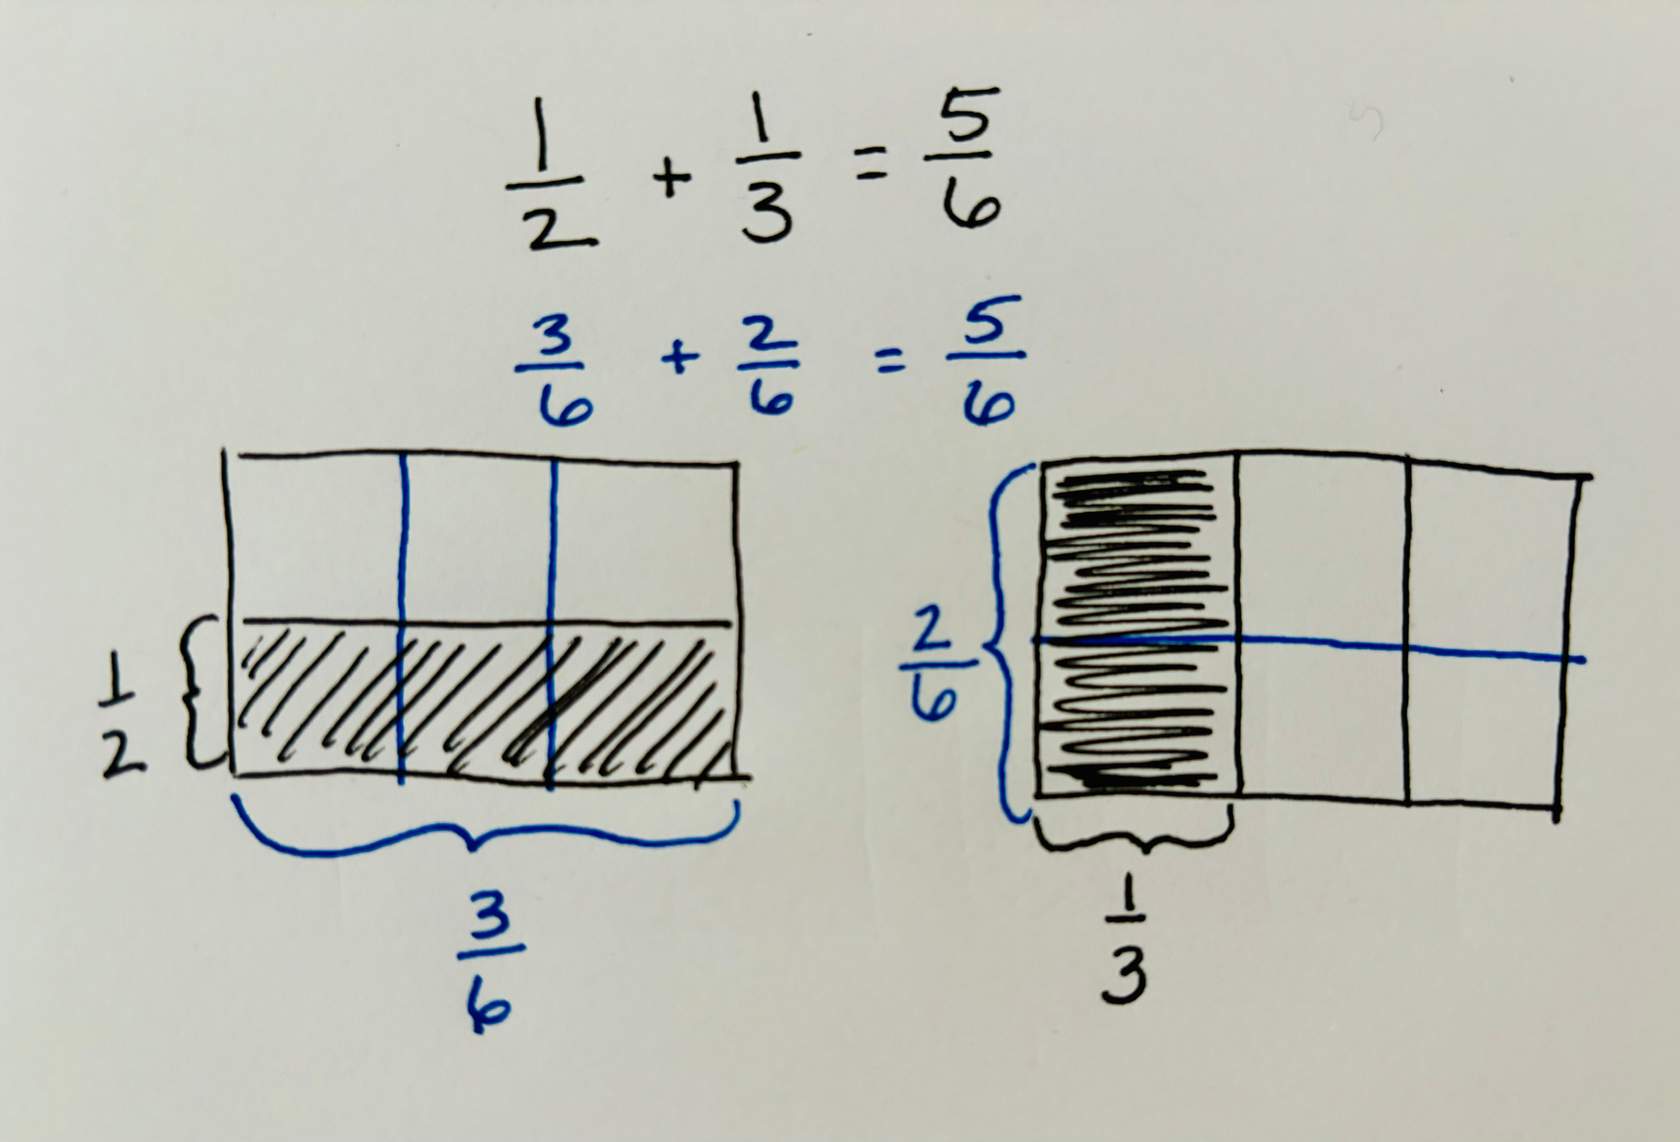 1/2 + 1/3 = 5/6
3/6 + 2/6 = 5/6
1/2
2/6
3/6
1/3